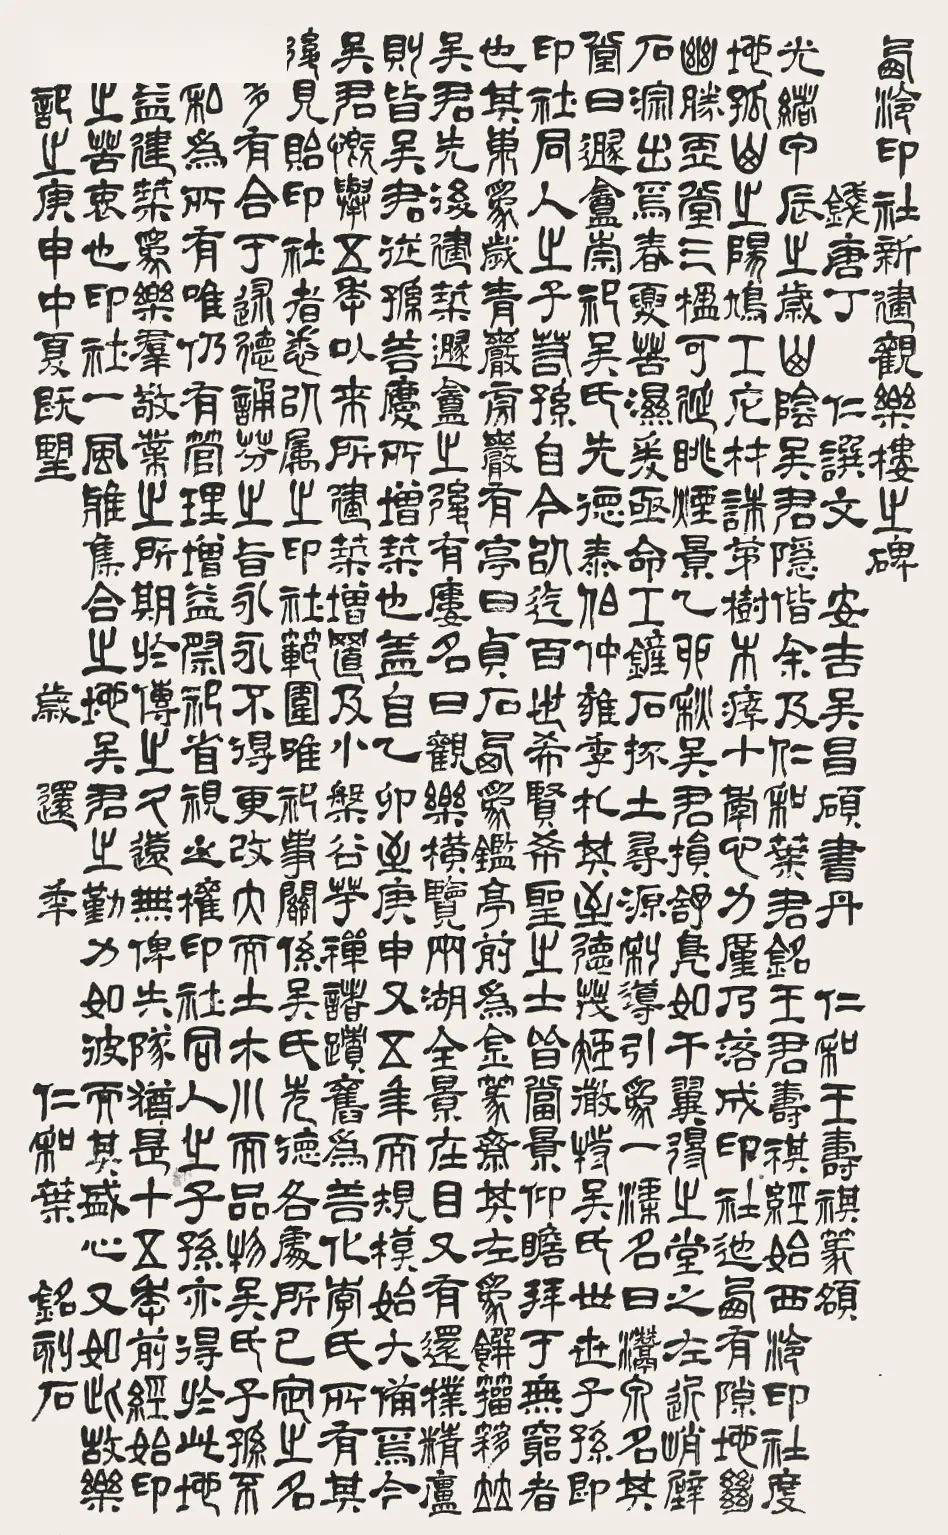 西泠印社新建觀樂樓之碑
錢唐丁仁譔文 安吉吳昌碩書丹 仁和王壽祺篆額
光緒甲辰之歲山陰吳君隱偕余及仁和葉君銘王君壽祺經始西泠印社度
地孤山之陽鳩工庀材誅茅樹木瘁十年心力廑乃落成印社迤西有隙地茲
幽勝堊堂三楹可延眺煙景乙卯秋吳君損舒鳧如干翼得之堂之左近峭壁
石淙出焉春夏苦濕爰亟命工鏟石抔土尋源利導引為一溁名曰灊泉名其
堂曰遯盦崇祀吳氏先德泰伯仲雍季札其至德茂矩澂特吳氏世世子孫即
印社同人之子若孫自今以迄百世希賢希聖之士皆當景仰瞻拜于無窮者
也其東為歲青巖巖有亭曰貞石西為鑑亭前為金篆齋其左為籀簃竝
吳君先後建築遯盦之後有廔名曰觀樂橫覽兩湖全景在目又有還樸精廬
則皆吳君從孫善慶所增築也蓋自乙卯至庚申又五年而規模始大備焉今
吳君慨舉五年以來所建築增置及小盤谷芋禪諸蹟舊為善化李氏所有其
後見貽印社者悉以屬之印社範圍唯祀事關係吳氏先德各處所已定之名
多有合于述德誦芬之旨永永不得更改大而土木小而品物吳氏子孫不
私為所有唯仍有管理增益祭祀省視之權印社同人之子孫亦得於此地
益建築為樂羣敬業之所期於傳之久遠無俾失隊猶是十五年前經始印
之苦衷也印社一風雅集合之地吳君之勤力如彼而其盛心又如此故樂
記之庚申中夏既朢 歲 還 年 仁和葉 銘刻石